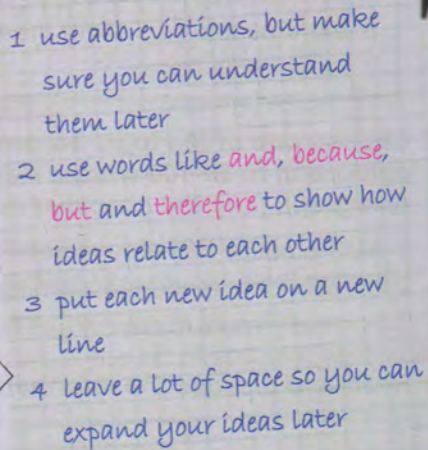 1 use abbreviations, but make
sure you can understand
them later
2 use words like and, because,
but and therefore to show how
ideas relate to each other
3 put each new idea on a new
line
4 leave a lot of space so you can
expand your ideas later